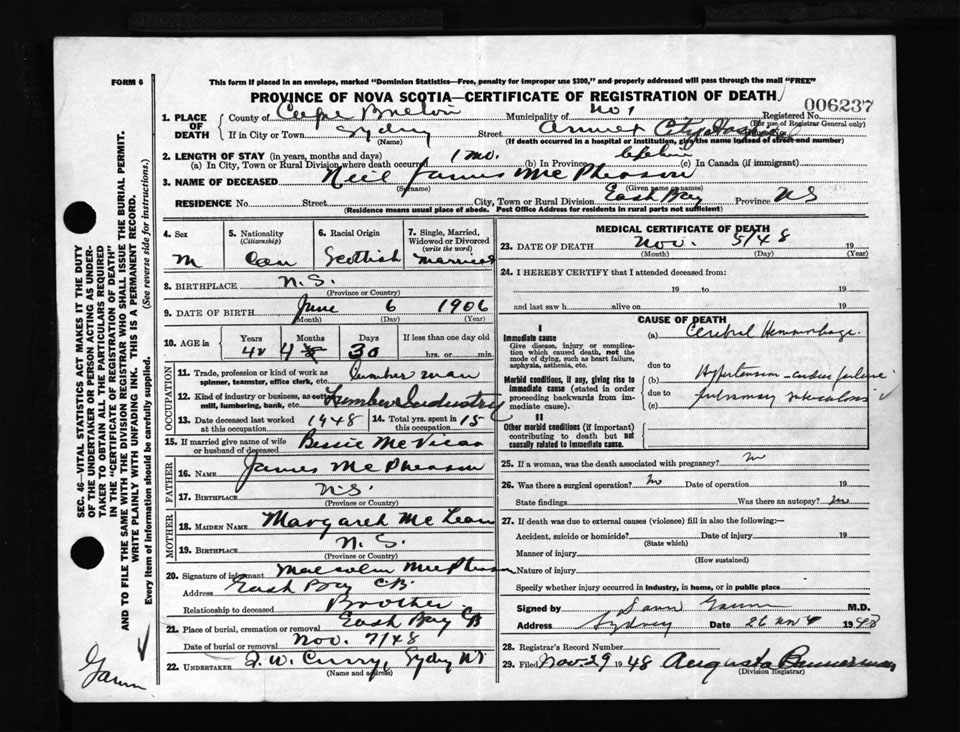 FORM 6
This form if placed in an envelope, marked "Dominion Statistics—Free, penalty for improper use $300," and properly addressed will pass through the mail "FREE"
PROVINCE OF NOVA SCOTIA—CERTIFICATE OF REGISTRATION OF DEATH
006237
1. PLACE OF DEATH
County of Cape Breton Municipality of No 1 Registered No.
(For use of Registrar General only)
If in City or Town Sydney Street City Hospital
(Name) (If death occurred in a hospital or institution, give the name instead of street and number)
2. LENGTH OF STAY (in years, months and days)
(a) In City, Town or Rural Division where death occurred 1 mo. (b) In Province (c) In Canada (if immigrant)
3. NAME OF DECEASED Neil James McPherson
(Surname) (Given name or names)
RESIDENCE No. Street City, Town or Rural Division East Bay Province NS
(Residence means usual place of abode. Post Office Address for residents in rural parts not sufficient)
4. Sex M
5. Nationality (Citizenship) Can
6. Racial Origin Scottish
7. Single, Married, Widowed or Divorced (write the word) Married
8. BIRTHPLACE N.S.
(Province or Country)
9. DATE OF BIRTH June 6 1906
(Month) (Day) (Year)
10. AGE in Years Months Days If less than one day old
42 4 30 hrs. or min.
OCCUPATION
11. Trade, profession or kind of work as spinner, teamster, office clerk, etc. Lumber man
12. Kind of industry or business, as cotton mill, lumbering, bank, etc. Lumber Industry
13. Date deceased last worked at this occupation 1948
14. Total yrs. spent in this occupation 15
15. If married give name of wife or husband of deceased Bessie McVicar
FATHER
16. Name James McPherson
17. Birthplace N.S.
(Province or Country)
MOTHER
18. Maiden Name Margaret McLean
19. Birthplace N.S.
(Province or Country)
20. Signature of informant Malcolm McPherson
Address East Bay CB
Relationship to deceased Brother
21. Place of burial, cremation or removal East Bay CB
Date of burial or removal Nov. 7/48
22. Undertaker Curry, Sydney
(Name and address)
MEDICAL CERTIFICATE OF DEATH
23. DATE OF DEATH Nov. 5/48 19
(Month) (Day) (Year)
24. I HEREBY CERTIFY that I attended deceased from:
19 to 19
and last saw h alive on 19
CAUSE OF DEATH
I
Immediate cause
Give disease, injury or complication which caused death, not the mode of dying, such as heart failure, asphyxia, asthenia, etc.
(a) Cerebral Hemorrhage
due to
Morbid conditions, if any, giving rise to immediate cause (stated in order proceeding backwards from immediate cause).
(b) Hypertension - cardiac failure
due to
(c) pulmonary tuberculosis
II
Other morbid conditions (if important) contributing to death but not causally related to immediate cause.
25. If a woman, was the death associated with pregnancy? no
26. Was there a surgical operation? no Date of operation 19
State findings Was there an autopsy? no
27. If death was due to external causes (violence) fill in also the following:—
Accident, suicide or homicide? Date of injury 19
(State which)
Manner of injury
(How sustained)
Nature of injury
Specify whether injury occurred in industry, in home, or in public place
Signed by M.D.
Address Sydney Date 26 Nov 1948
28. Registrar's Record Number
29. Filed Nov 29 1948 Augusta Bannerman
(Division Registrar)
SEC. 46—VITAL STATISTICS ACT MAKES IT THE DUTY
OF THE UNDERTAKER OR PERSON ACTING AS UNDER-
TAKER TO OBTAIN ALL THE PARTICULARS REQUIRED
IN THE "CERTIFICATE OF REGISTRATION OF DEATH"
AND TO FILE THE SAME WITH THE DIVISION REGISTRAR WHO SHALL ISSUE THE BURIAL PERMIT.
WRITE PLAINLY WITH UNFADING INK. THIS IS A PERMANENT RECORD.
Every item of information should be carefully supplied. (See reverse side for instructions.)